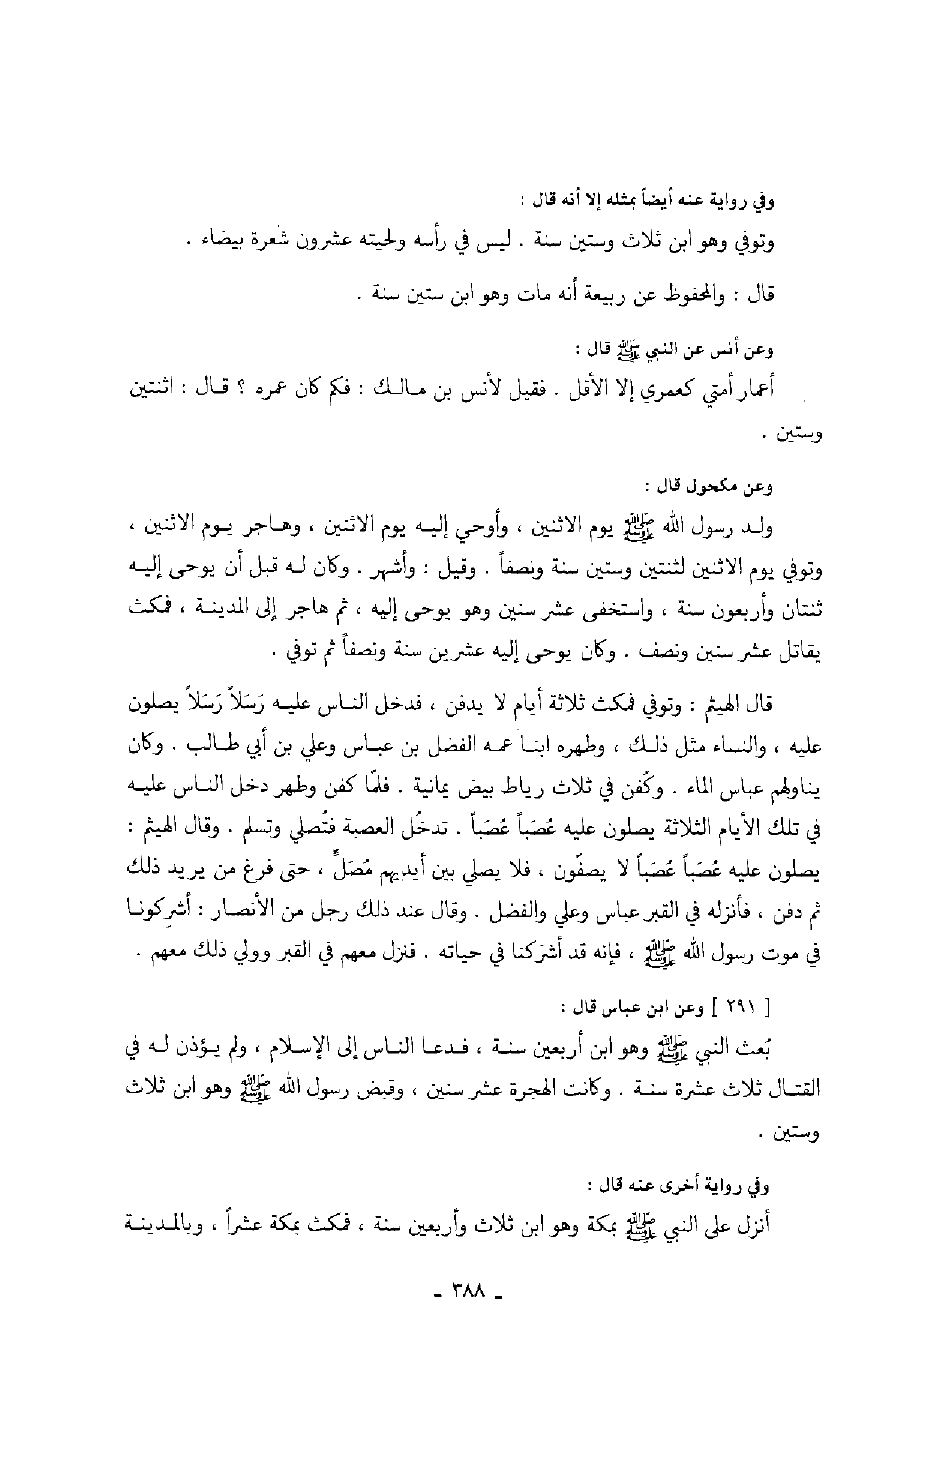 وفي رواية عنه أيضاً بمثله إلا أنه قال :
وتوفي وهو ابن ثلاث وستين سنة . ليس في رأسه ولحيته عشرون شَعرة بيضاء .
قال : والمحفوظ عن ربيعة أنه مات وهو ابن ستين سنة .
وعن أنس عن النبي ﷺ قال :
أعمار أمتي كعمري إلا الأقل . فقيل لأنس بن مالك : فكم كان عمره ؟ قال : اثنتين
وستين .
وعن مكحول قال :
ولد رسول الله ﷺ يوم الاثنين ، وأوحي إليه يوم الاثنين ، وهاجر يوم الاثنين ،
وتوفي يوم الاثنين لثنتين وستين سنة ونصفاً . وقيل : وأشهر . وكان له قبل أن يوحى إليه
ثنتان وأربعون سنة ، واستخفى عشر سنين وهو يوحى إليه ، ثم هاجر إلى المدينة ، فمكث
يقاتل عشر سنين ونصف . وكان يوحى إليه عشرين سنة ونصفاً ثم توفي .
قال الهيثم : وتوفي فمكث ثلاثة أيام لا يدفن ، فدخل الناس عليه رَسَلاً رَسَلاً يصلون
عليه ، والنساء مثل ذلك ، وطهره ابنا عمه الفضل بن عباس وعلي بن أبي طالب . وكان
يناولهم عباس الماء . وكُفن في ثلاث رياط بيض يمانية . فلمّا كفن وطهر دخل الناس عليه
في تلك الأيام الثلاثة يصلون عليه عُصَباً عُصَباً . تدخُل العصبة فتُصلي وتسلم . وقال الهيثم :
يصلون عليه عُصَباً عُصَباً لا يصفّون ، فلا يصلي بين أيديهم مُصَلٍّ ، حتى فرغ من يريد ذلك
ثم دفن ، فأنزله في القبر عباس وعلي والفضل . وقال عند ذلك رجل من الأنصار : أشركونا
في موت رسول الله ﷺ ، فإنه قد أشركنا في حياته . فنزل معهم في القبر وولي ذلك معهم .
[ ٢٩١ ] وعن ابن عباس قال :
بُعث النبي ﷺ وهو ابن أربعين سنة ، فدعا الناس إلى الإسلام ، ولم يؤذن له في
القتال ثلاث عشرة سنة . وكانت الهجرة عشر سنين ، وقبض رسول الله ﷺ وهو ابن ثلاث
وستين .
وفي رواية أخرى عنه قال :
أنزل على النبي ﷺ بمكة وهو ابن ثلاث وأربعين سنة ، فمكث بمكة عشراً ، وبالمدينة
- ٣٨٨ -